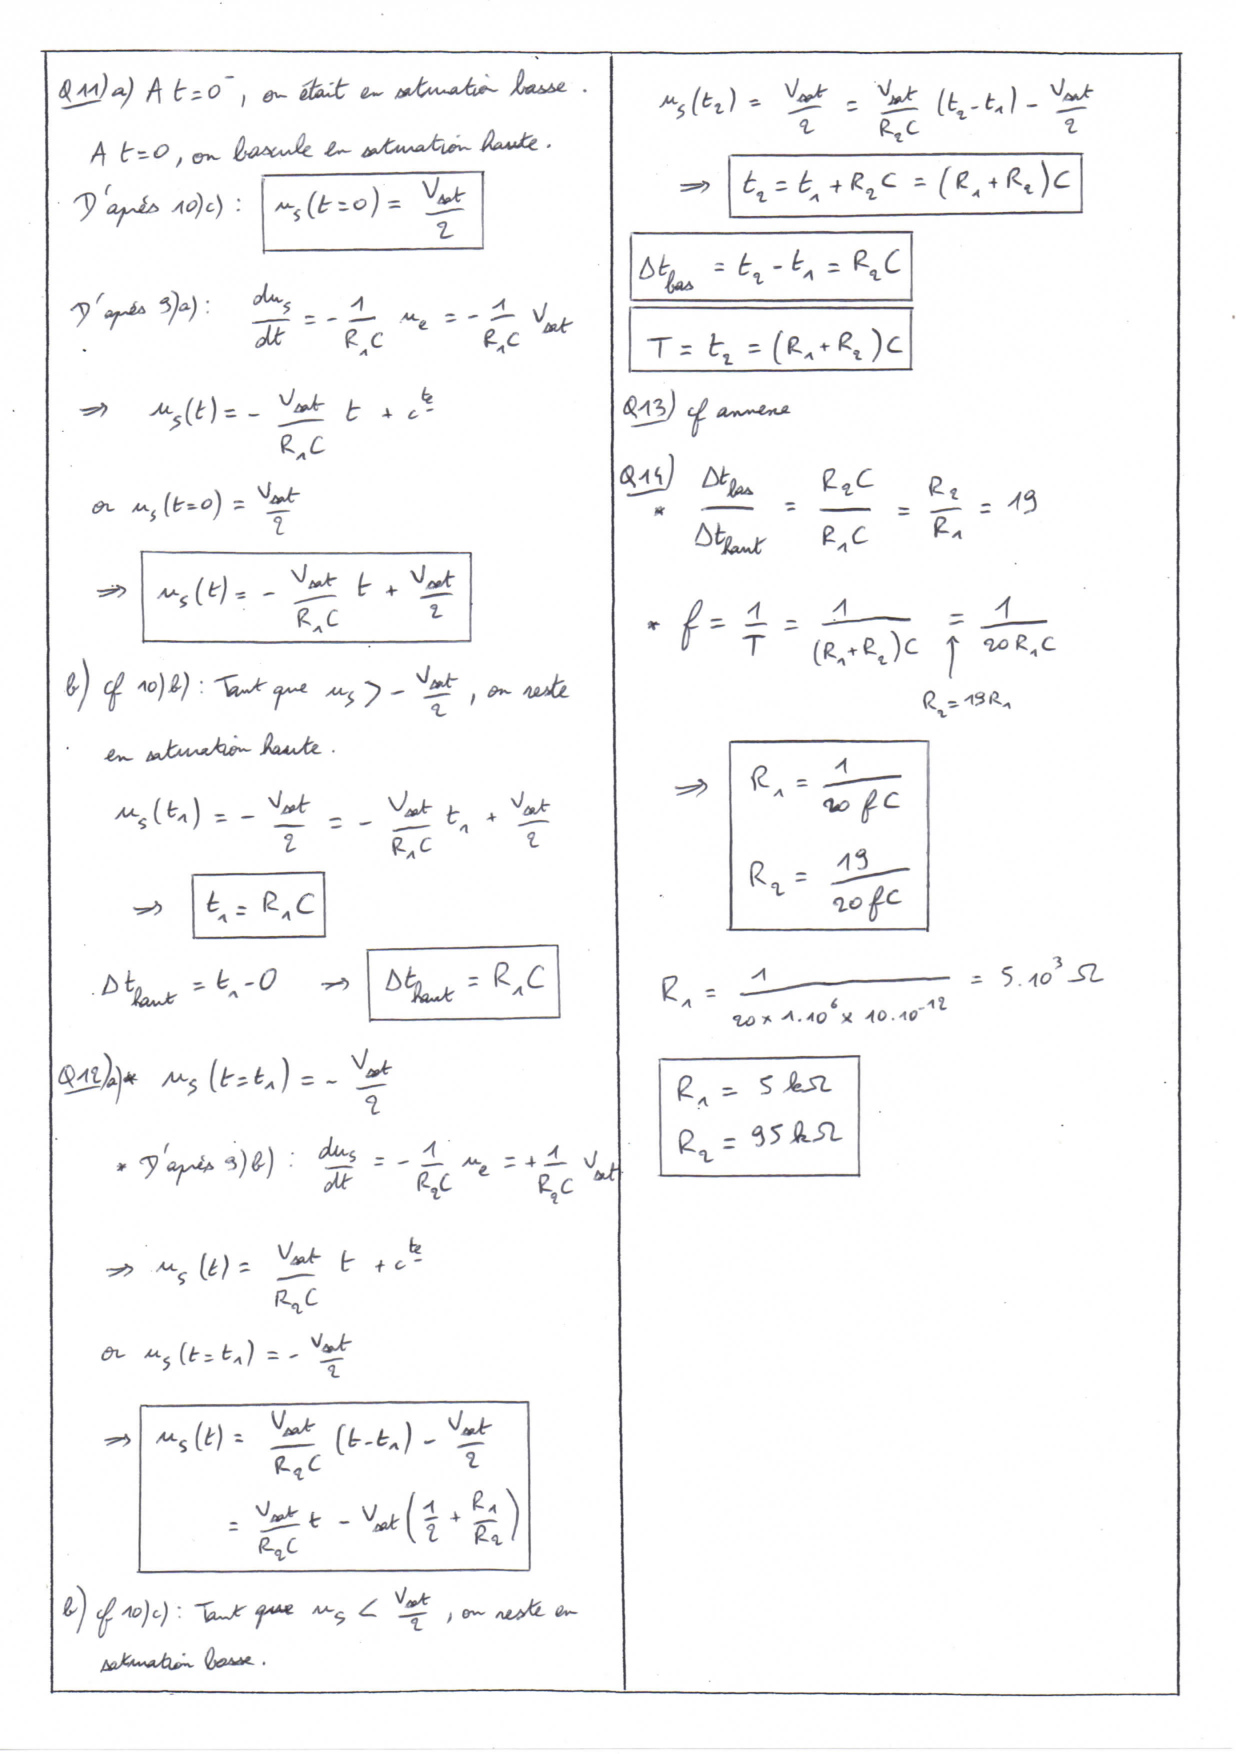 Q11) a) A t=0⁻, on était en saturation basse.
A t=0, on bascule en saturation haute.
D'après 10)c) : u_s(t=0) = V_sat/2
D'après 9)a) : du_s/dt = - 1/(R₁C) u_e = - 1/(R₁C) V_sat
⇒ u_s(t) = - V_sat/(R₁C) t + c^te
or u_s(t=0) = V_sat/2
⇒ u_s(t) = - V_sat/(R₁C) t + V_sat/2
b) cf 10)b) : Tant que u_s > - V_sat/2, on reste
en saturation haute.
u_s(t₁) = - V_sat/2 = - V_sat/(R₁C) t₁ + V_sat/2
⇒ t₁ = R₁C
Δt_haut = t₁-0 → Δt_haut = R₁C
Q12) a) * u_s(t=t₁) = - V_sat/2
* D'après 9)b) : du_s/dt = - 1/(R₂C) u_e = + 1/(R₂C) V_sat
⇒ u_s(t) = V_sat/(R₂C) t + c^te
or u_s(t=t₁) = - V_sat/2
⇒ u_s(t) = V_sat/(R₂C) (t-t₁) - V_sat/2
= V_sat/(R₂C) t - V_sat (1/2 + R₁/R₂)
b) cf 10)c) : Tant que u_s < V_sat/2, on reste en
saturation basse.
u_s(t₂) = V_sat/2 = V_sat/(R₂C) (t₂-t₁) - V_sat/2
⇒ t₂ = t₁ + R₂C = (R₁+R₂)C
Δt_bas = t₂-t₁ = R₂C
T = t₂ = (R₁+R₂)C
Q13) cf annexe
Q14) * Δt_bas/Δt_haut = R₂C/(R₁C) = R₂/R₁ = 19
* f = 1/T = 1/((R₁+R₂)C) = 1/(20R₁C)
↑
R₂=19R₁
⇒ R₁ = 1/(20 f C)
R₂ = 19/(20 f C)
R₁ = 1/(20 × 1.10⁶ × 10.10⁻¹²) = 5.10³ Ω
R₁ = 5 kΩ
R₂ = 95 kΩ